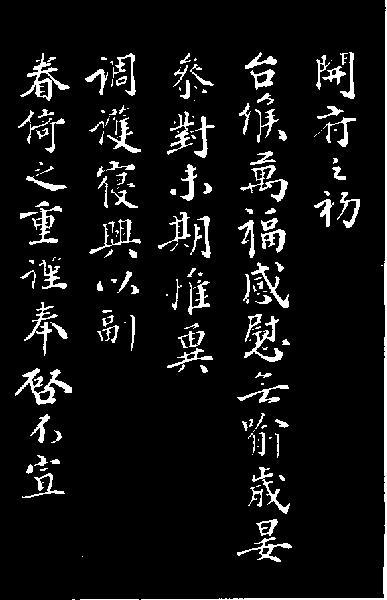 開府之初
台候萬福感慰無喻歲晏
參對未期惟冀
調護寢興以副
春倚之重謹奉啓不宣